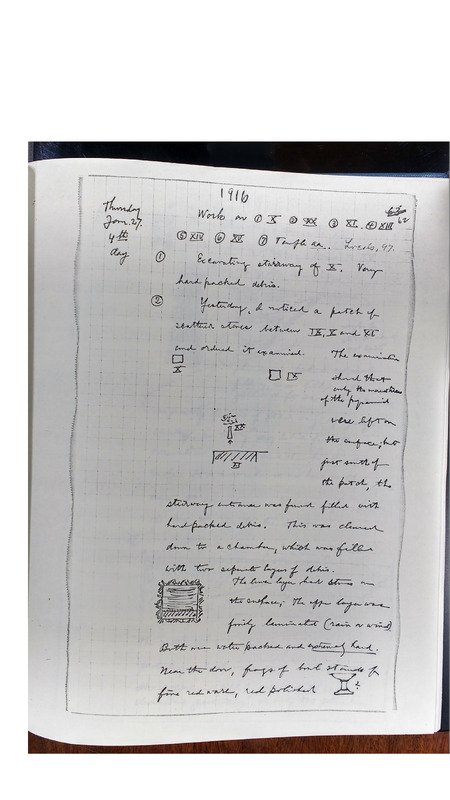 1916
Thursday
Jan. 27.
4th
day
62
Work on ① X ② XX ③ XI. ④ XIII
⑤ XIV ⑥ XV. ⑦ Tomb aa.
① Excavating stairway of X. Very
hard packed debris.
② Yesterday, I noticed a patch of
scattered stones between IX, X and XI
and ordered it examined. The examination
X
IX
showed that
only the
of the pyramid
were left on
the surface; but
just south of
the patch, the
XX
XI
stairway entrance was found filled with
hard packed debris. This was cleared
down to a chamber, which was filled
with two separate layers of debris.
The lower layer had stones on
the surface; The upper layer was
finely laminated (rain or wind)
Both are water packed and extremely hard.
Near the door, frags of bowl stands of
fine red ware, red polished
?